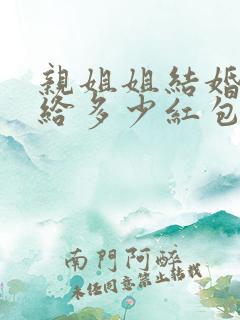 親姐姐結婚
給多少紅包
南門阿醉
未經同意禁止轉載